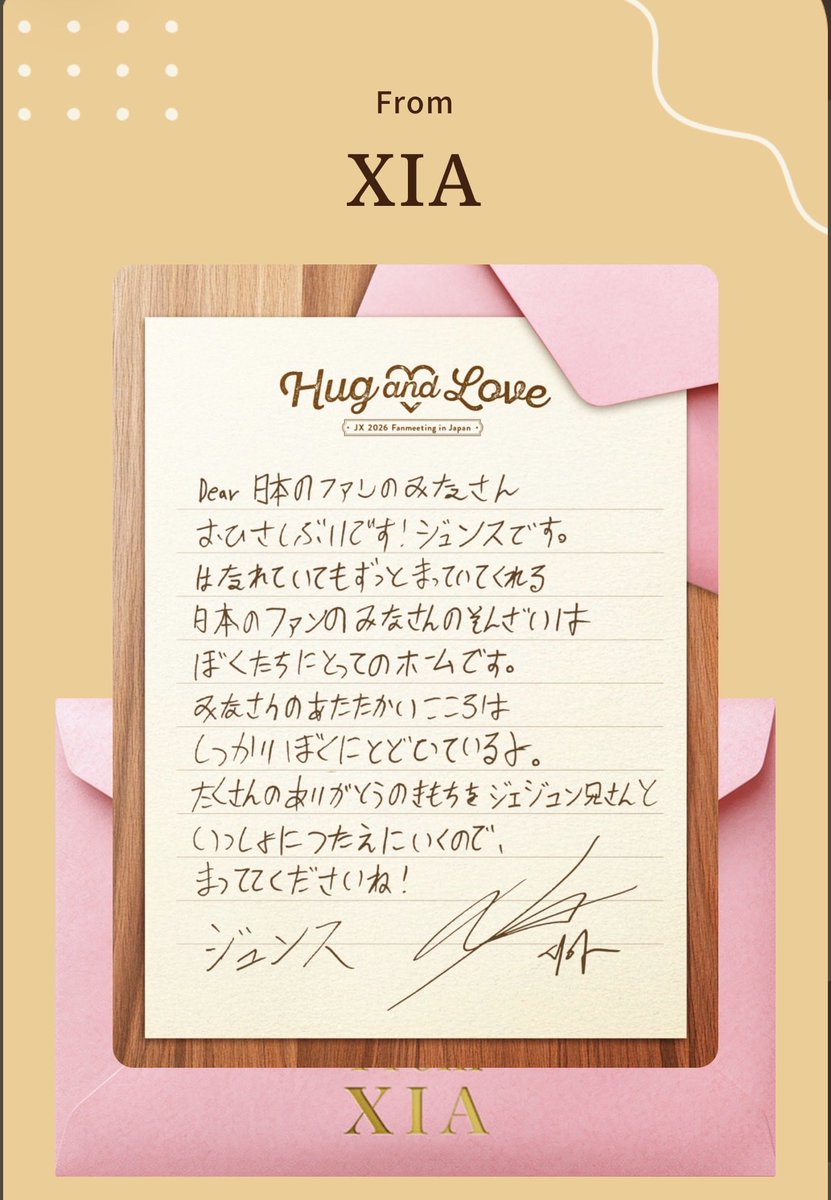 From
XIA
Hug and Love
・JX 2026 Fanmeeting in Japan・
Dear 日本のファンのみなさん
おひさしぶりです！ジュンスです。
はなれていてもずっとまっていてくれる
日本のファンのみなさんのそんざいは
ぼくたちにとってのホームです。
みなさんのあたたかいこころは
しっかりぼくにとどいているよ。
たくさんのありがとうのきもちをジェジュン兄さんと
いっしょにつたえにいくので、
まっててくださいね！
ジュンス
From
XIA